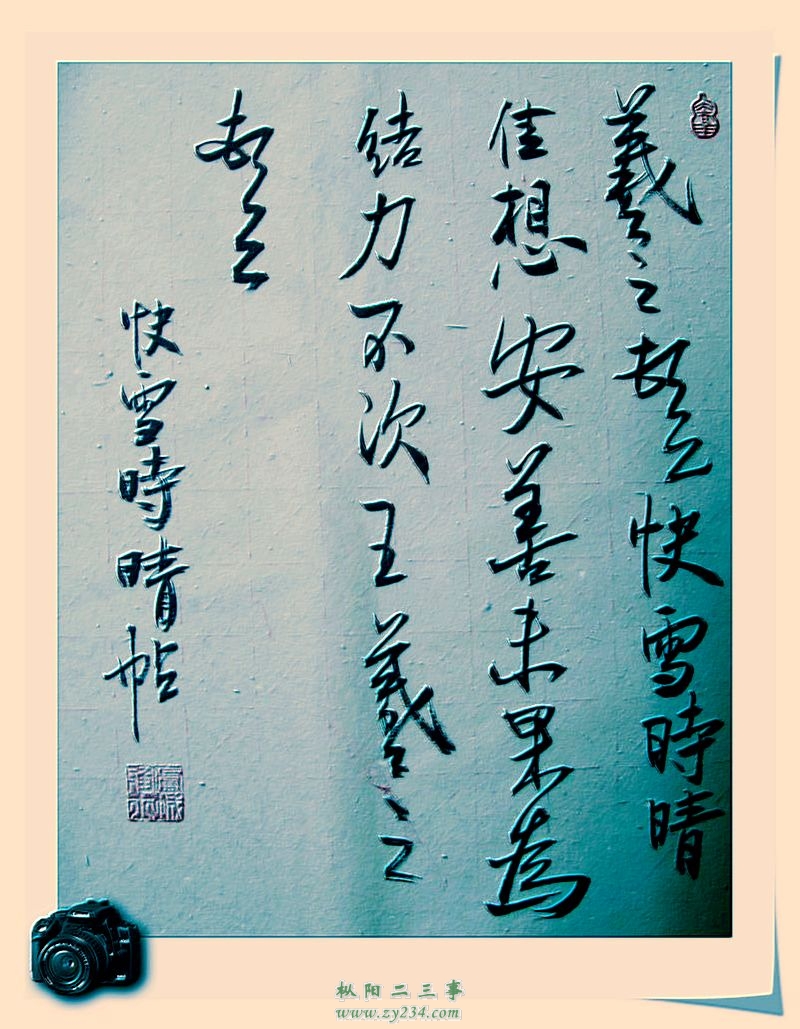 羲之頓首快雪時晴
佳想安善未果為
結力不次王羲之
頓首
快雪時晴帖
枞阳二三事
www.zy234.com